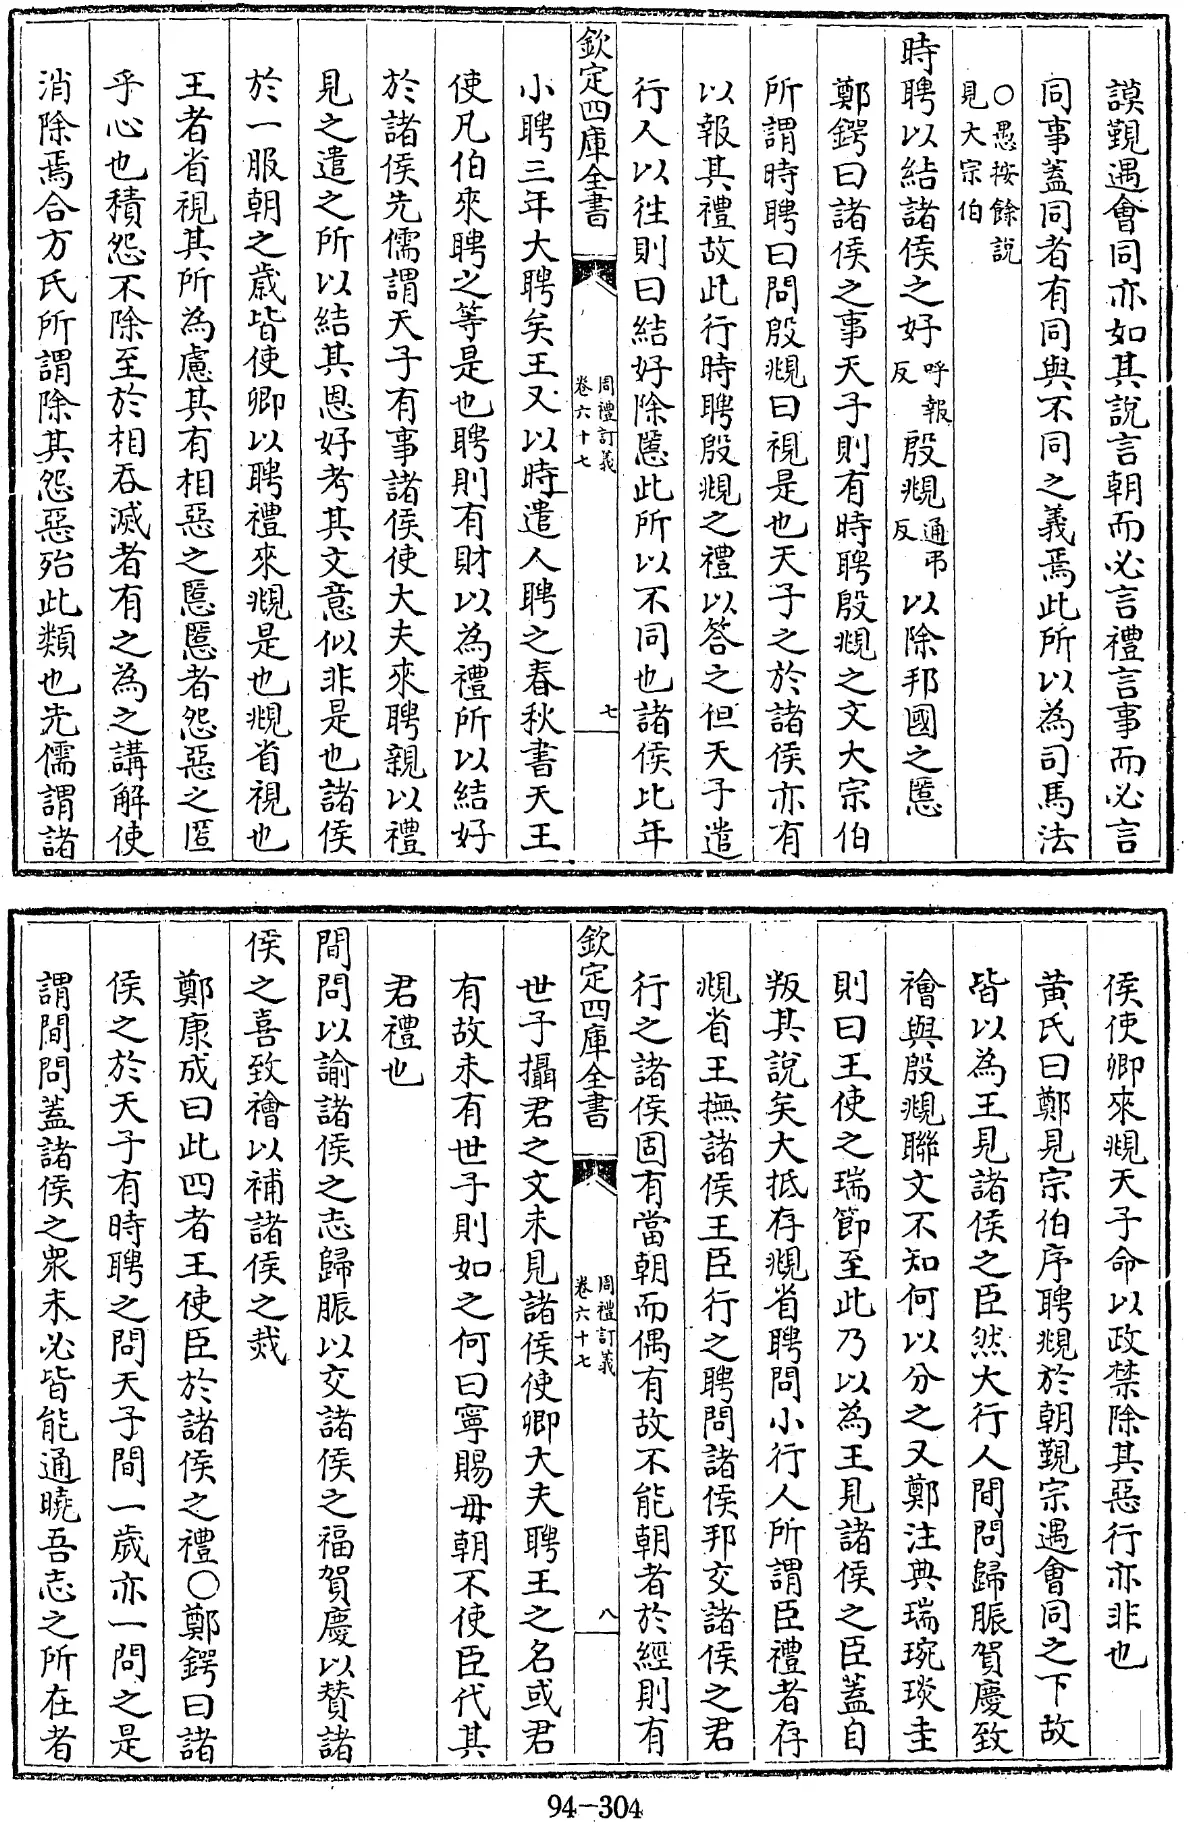 謨覲遇會同亦如其說言朝而必言禮言事而必言
同事蓋同者有同與不同之義焉此所以為司馬法
○愚按餘說
見大宗伯
時聘以結諸侯之好呼報反殷覜通弔反以除邦國之慝
鄭鍔曰諸侯之事天子則有時聘殷覜之文大宗伯
所謂時聘曰問殷覜曰視是也天子之於諸侯亦有
以報其禮故此行時聘殷覜之禮以答之但天子遣
行人以往則曰結好除慝此所以不同也諸侯比年
欽定四庫全書 周禮訂義 卷六十七 七
小聘三年大聘矣王又以時遣人聘之春秋書天王
使凡伯來聘之等是也聘則有財以為禮所以結好
於諸侯先儒謂天子有事諸侯使大夫來聘親以禮
見之遣之所以結其恩好考其文意似非是也諸侯
於一服朝之歲皆使卿以聘禮來覜是也覜省視也
王者省視其所為慮其有相惡之慝慝者怨惡之匿
乎心也積怨不除至於相吞滅者有之為之講解使
消除焉合方氏所謂除其怨惡殆此類也先儒謂諸
侯使卿來覜天子命以政禁除其惡行亦非也
黃氏曰鄭見宗伯序聘覜於朝覲宗遇會同之下故
皆以為王見諸侯之臣然大行人間問歸脤賀慶致
禬與殷覜聯文不知何以分之又鄭注典瑞琬琰圭
則曰王使之瑞節至此乃以為王見諸侯之臣蓋自
叛其說矣大抵存覜省聘問小行人所謂臣禮者存
覜省王撫諸侯王臣行之聘問諸侯邦交諸侯之君
行之諸侯固有當朝而偶有故不能朝者於經則有
欽定四庫全書 周禮訂義 卷六十七 八
世子攝君之文未見諸侯使卿大夫聘王之名或君
有故未有世子則如之何曰寧賜毋朝不使臣代其
君禮也
間問以諭諸侯之志歸脤以交諸侯之福賀慶以贊諸
侯之喜致禬以補諸侯之烖
鄭康成曰此四者王使臣於諸侯之禮○鄭鍔曰諸
侯之於天子有時聘之問天子間一歲亦一問之是
謂間問蓋諸侯之衆未必皆能通曉吾志之所在者
94-304